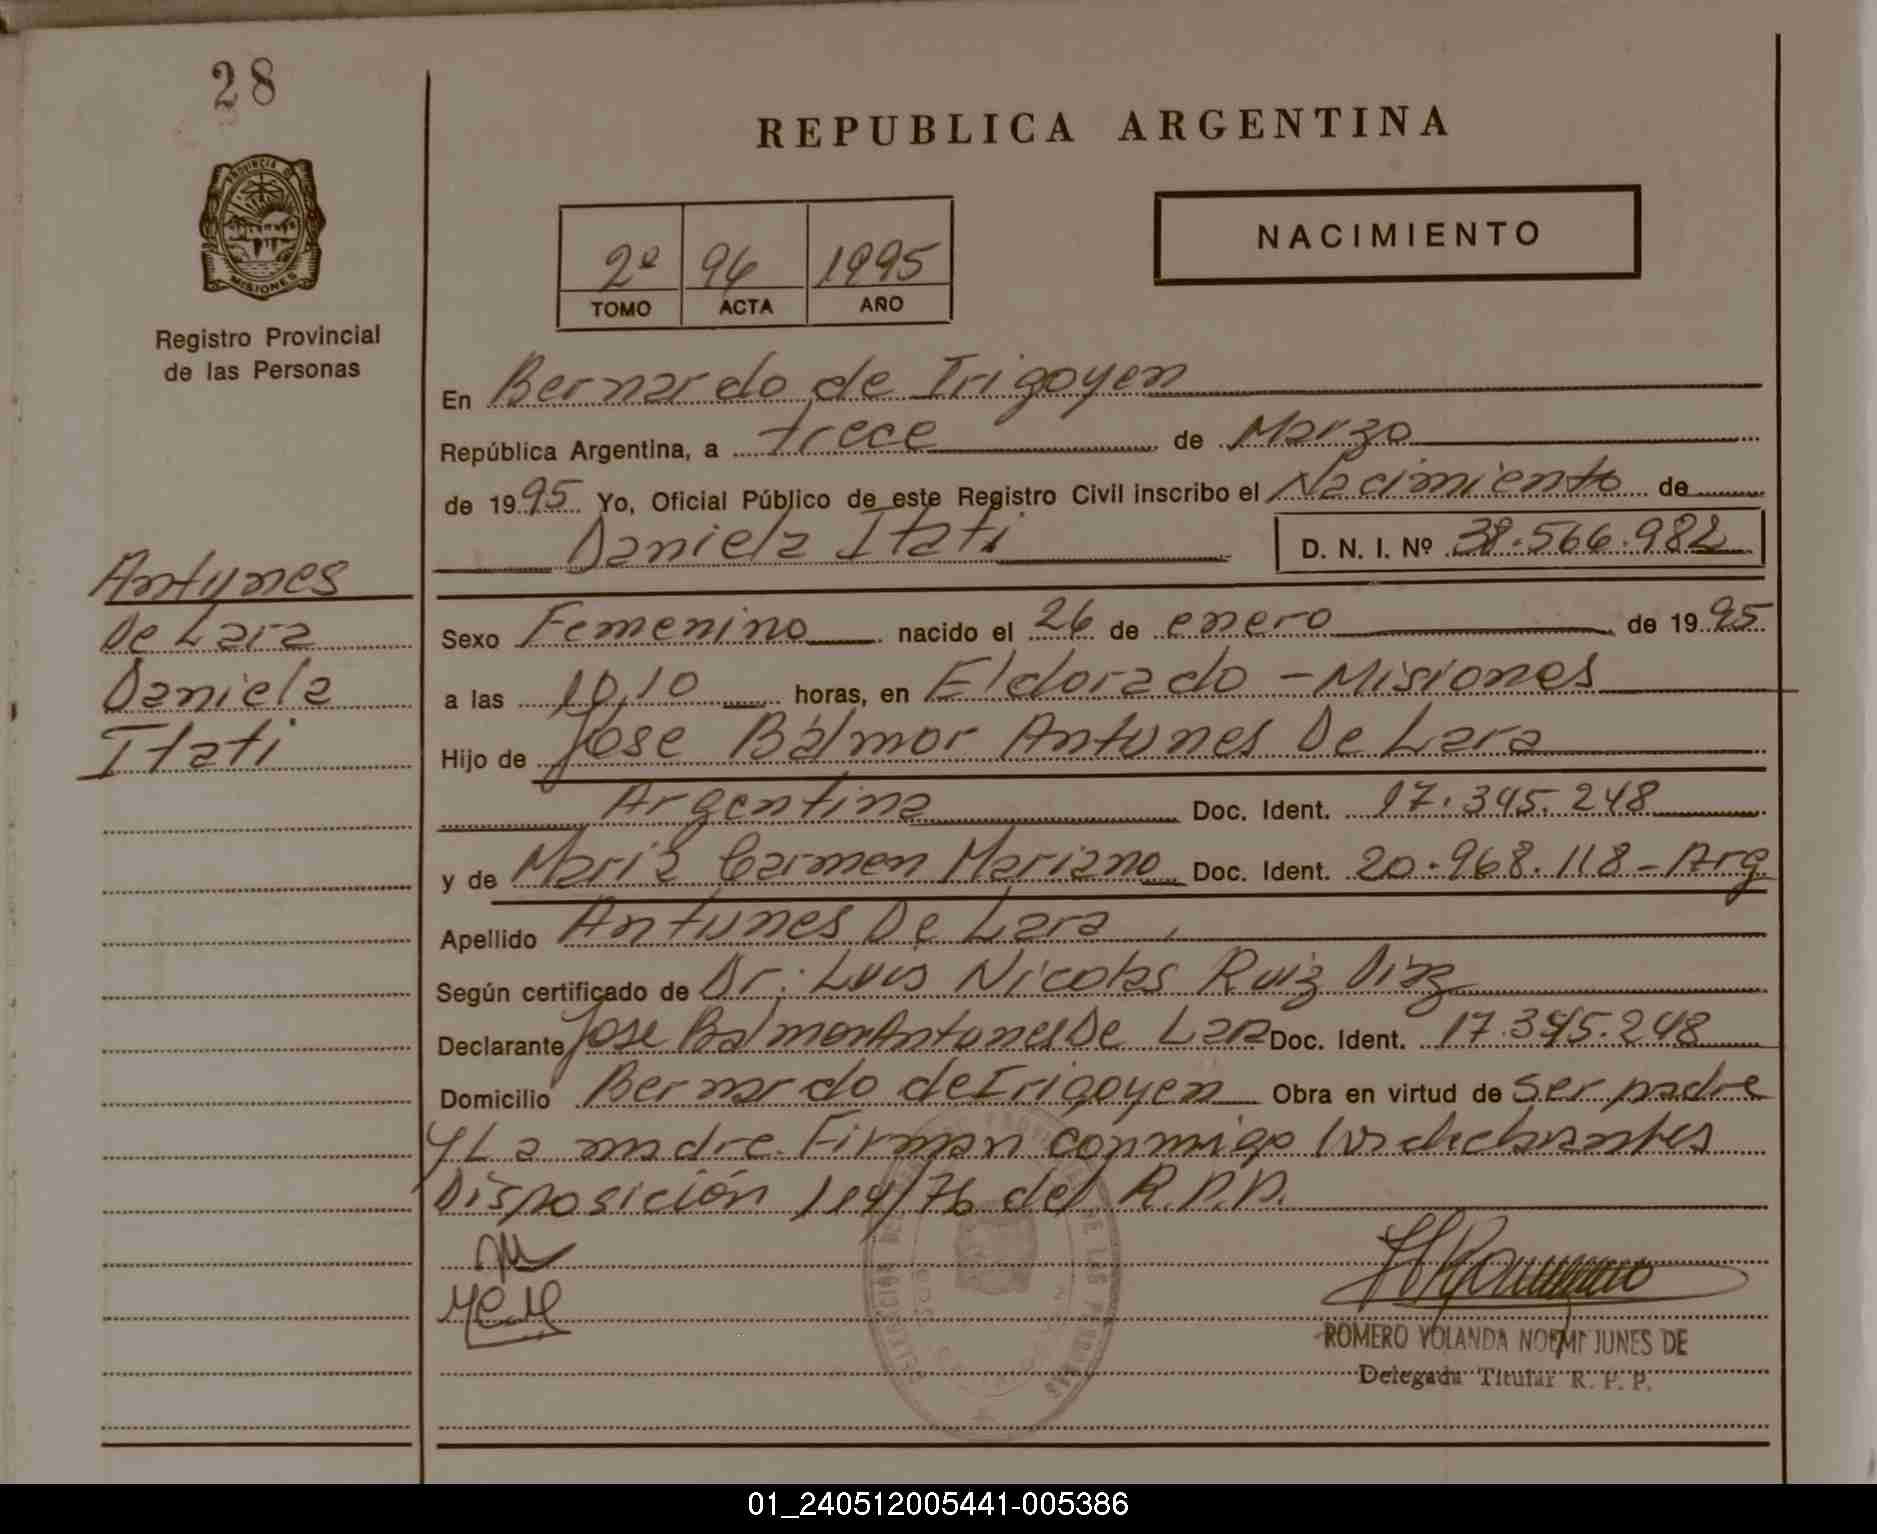 28
REPUBLICA ARGENTINA
PROVINCIA DE
MISIONES
Registro Provincial
de las Personas
2º 94 1995
TOMO ACTA AÑO
NACIMIENTO
En Bernardo de Irigoyen
República Argentina, a trece de Marzo
de 1995 Yo, Oficial Público de este Registro Civil inscribo el Nacimiento de
Daniela Itati D. N. I. Nº 38.566.982
Antunes
De Lara
Daniela
Itati
Sexo Femenino nacido el 26 de enero de 1995
a las 10,10 horas, en Eldorado - Misiones
Hijo de Jose Balmor Antunes De Lara
Argentina Doc. Ident. 17.345.248
y de Maria Carmen Mariano Doc. Ident. 20.968.118 - Arg
Apellido Antunes De Lara
Según certificado de Dr. Luis Nicolas Ruiz Diaz
Declarante Jose Balmor Antunes De Lara Doc. Ident. 17.345.248
Domicilio Bernardo de Irigoyen Obra en virtud de ser padre
y La madre. Firman conmigo los declarantes
Disposición 114/76 del R.P.P.
ROMERO YOLANDA NOEMI JUNES DE
Delegada Titular R. P. P.
01_240512005441-005386